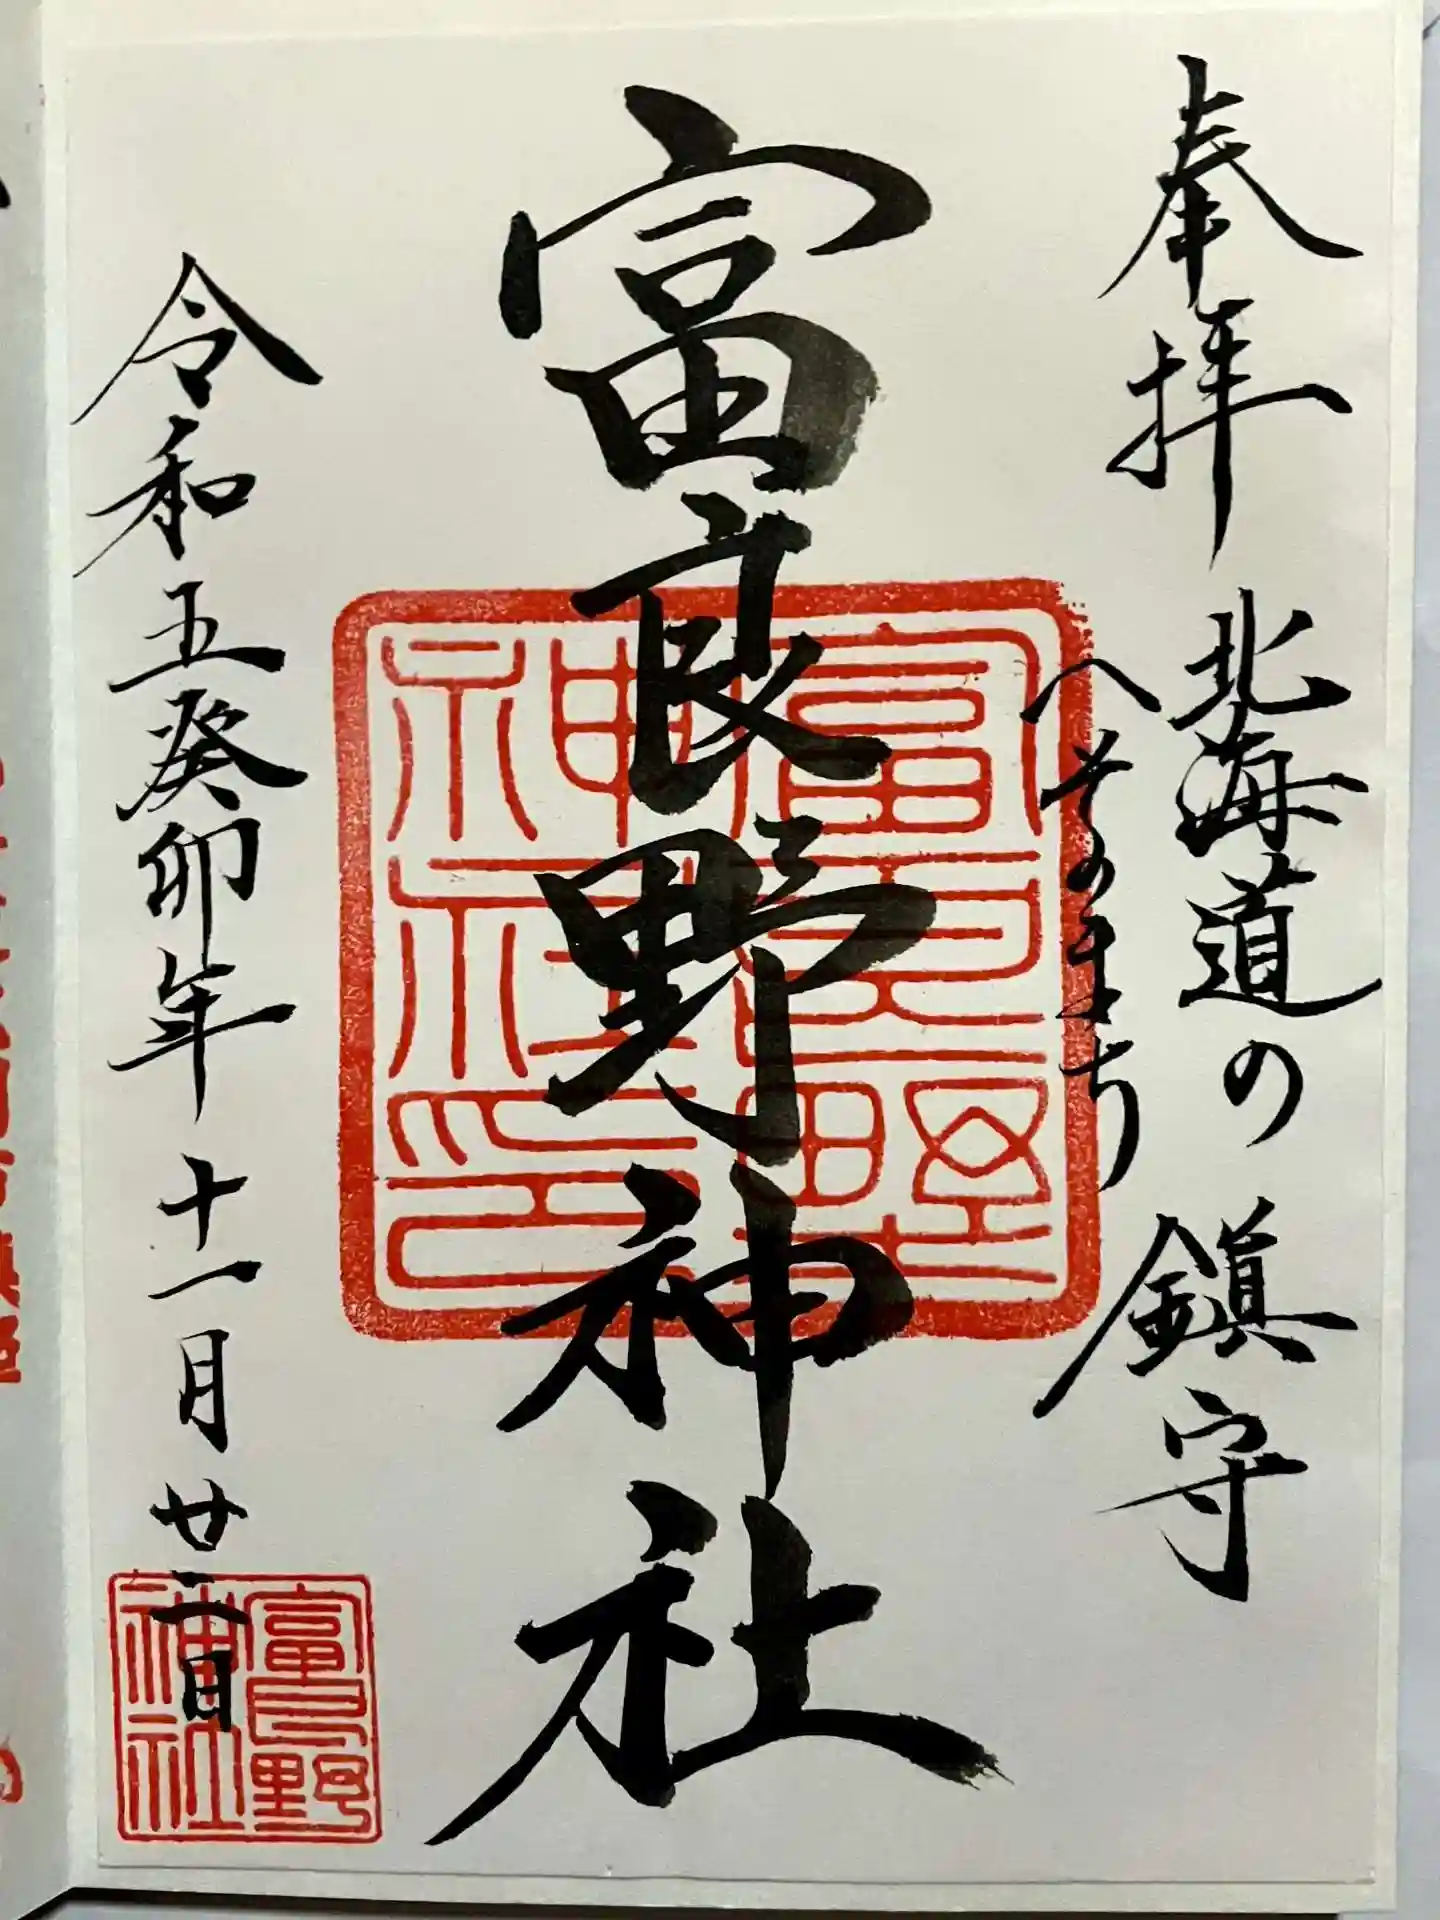 奉拝 北海道の鎮守
へそのまち
富良野神社
令和五癸卯年十一月廿二日
富良野神社印
富良野神社